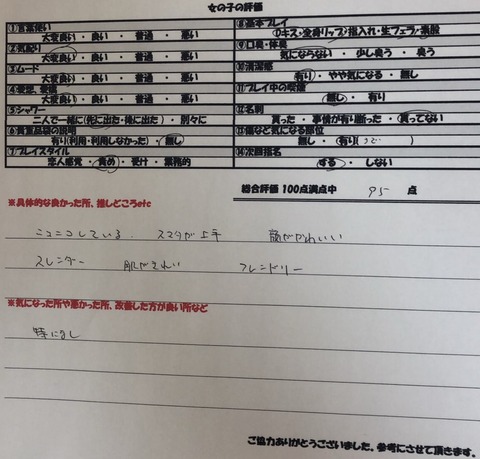 女の子の評価
①言葉使い
大変良い・良い・普通・悪い
②気配り
大変良い・良い・普通・悪い
③ムード
大変良い・良い・普通・悪い
④愛想、愛嬌
大変良い・良い・普通・悪い
⑤シャワー
二人で一緒に(先に出た・後に出た)・別々に
⑥貴重品袋の説明
有り(利用・利用しなかった)・無し
⑦プレイスタイル
恋人感覚・責め・受け・業務的
⑧基本プレイ
①キス・全身リップ・指入れ・生フェラ・素股
⑨口臭・体臭
気にならない・少し臭う・臭う
⑩清潔感
有り・やや気になる・無し
⑪プレイ中の喫煙
無し・有り
⑫名刺
貰った・事情が有り断った・貰ってない
⑬傷など気になる部位
無し・有り(うで)
⑭次回指名
する・しない
総合評価 100点満点中 95 点
※具体的な良かった所、推しどころetc
ニコニコしている スマタが上手 顔がかわいい
スレンダー 肌がきれい フレンドリー
※気になった所や悪かった所、改善した方が良い所など
特になし
ご協力ありがとうございました。参考にさせて頂きます。